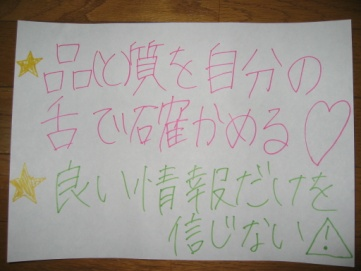 品(と)質を自分の
舌で確かめる♡
良い情報だけを
信じない⚠